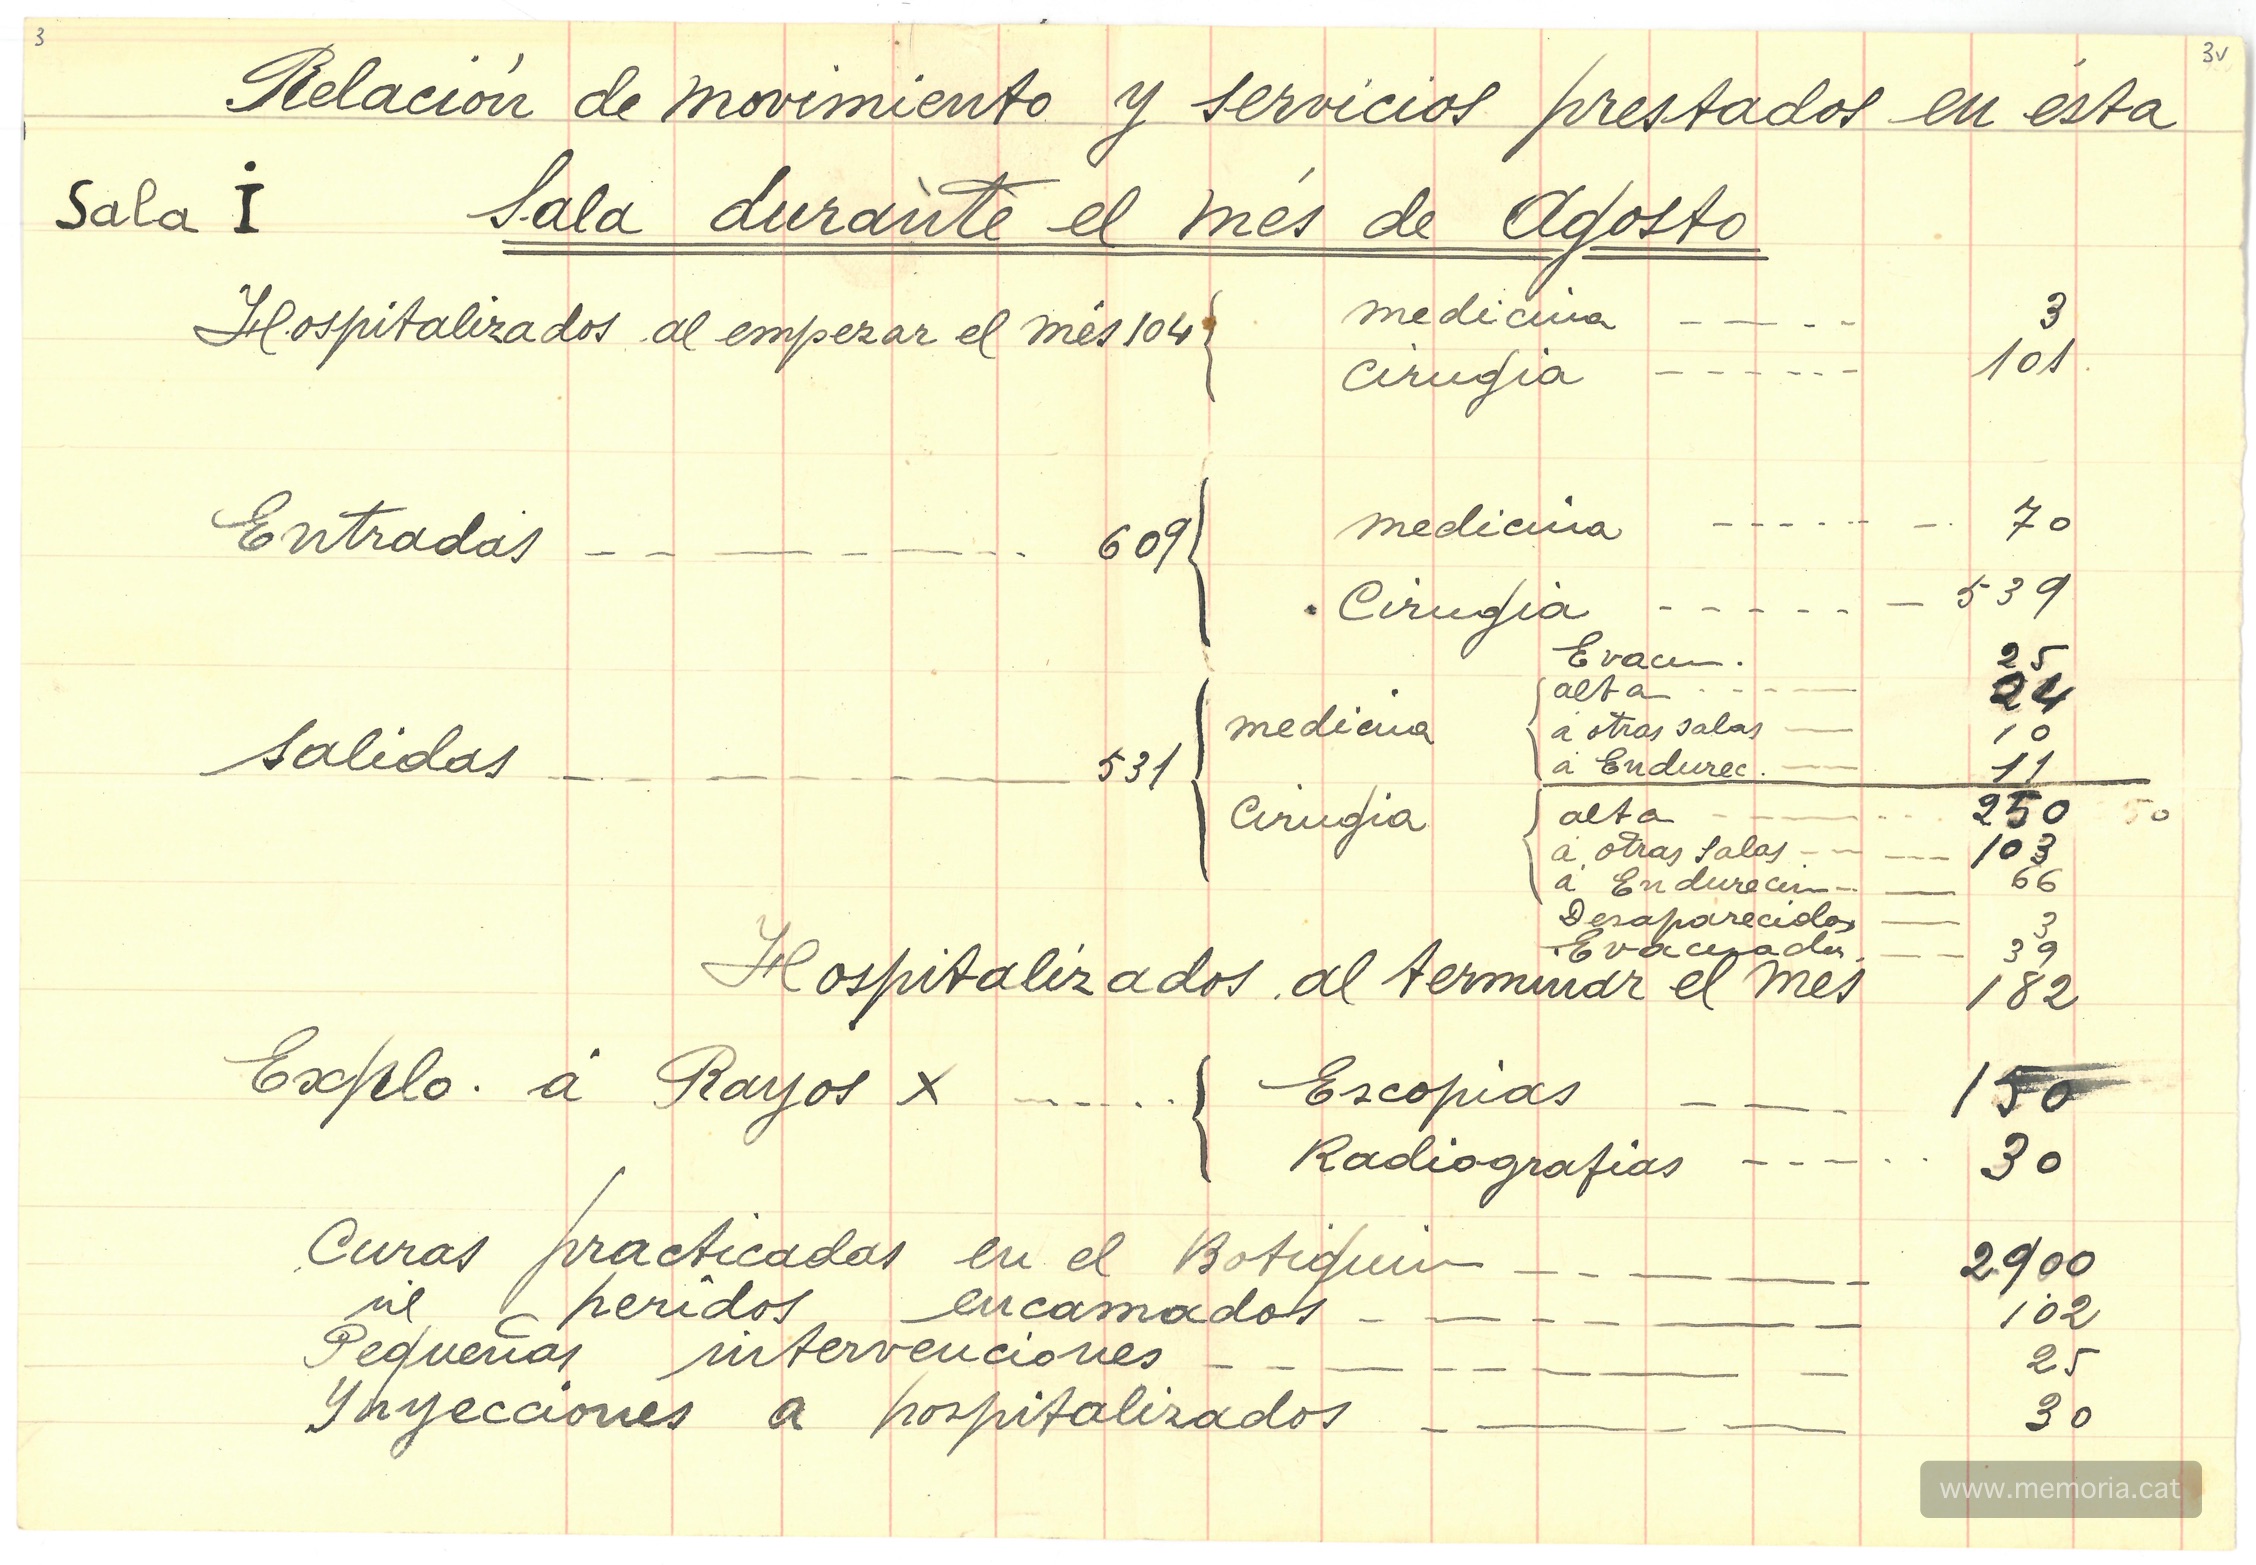 3
3v
Relación de movimiento y servicios prestados en ésta
Sala I
Sala durante el més de Agosto
Hospitalizados al empezar el més 104 { medicina ----- 3
Cirugia ------ 101
Entradas -------- 609 { medicina ------- 70
Cirugia ------- 539
Evacu-. 25
alta ----- 24
Salidas -------- 531 { medicina { á otras salas -- 10
á Endurec. -- 11
Cirugia { alta ------ 250 50
á otras salas ---- 103
á Endurecim-- -- 66
Desaparecidos -- 3
Evacuados. --- 39
Hospitalizados al terminar el mes 182
Explo. á Rayos X ------ { Escopias ---- 150
Radiografias ------ 30
Curas practicadas en el Botiquin ------ 2900
heridos encamados -------- 102
Pequeñas intervenciones -------- 25
Ynyecciones a hospitalizados ----- 30
www.memoria.cat